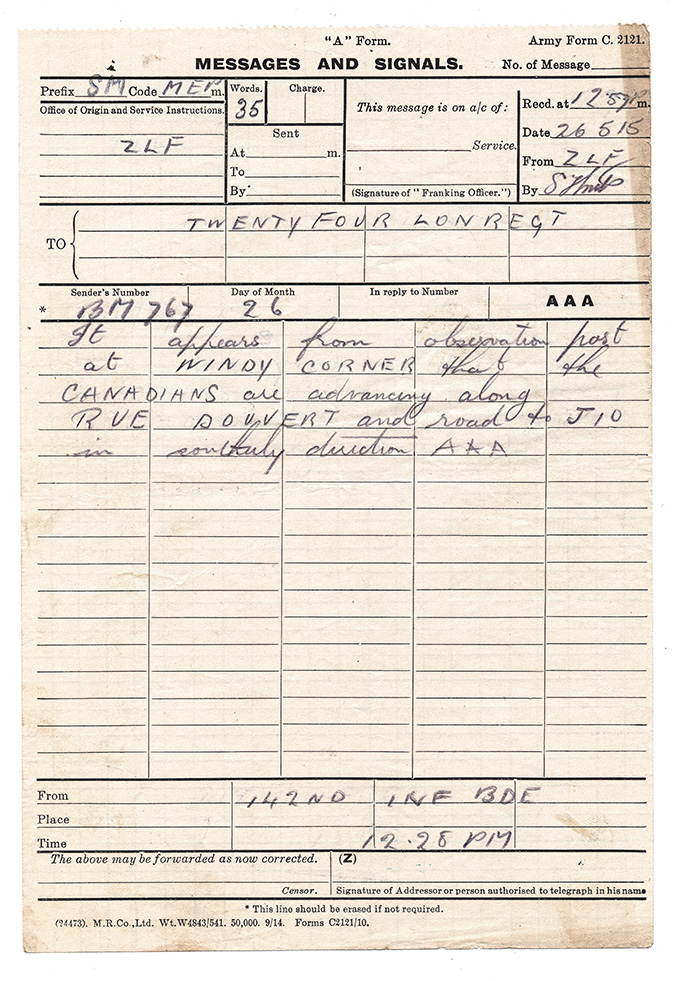 "A" Form. Army Form C. 2121.
MESSAGES AND SIGNALS. No. of Message
Prefix SM Code MEP m. Words. Charge. This message is on a/c of: Recd. at 12.57P m.
35
Office of Origin and Service Instructions. Sent Service. Date 26 5 15
ZLF At m. From ZLF
To
By (Signature of "Franking Officer.") By
TO TWENTY FOUR LON REGT
Sender's Number Day of Month In reply to Number AAA
* BM 767 26
It appears from observation post
at WINDY CORNER that the
CANADIANS are advancing along
RUE DOUVERT and road to J10
in southerly direction AAA
From 142ND INF BDE
Place
Time 12.28 PM
The above may be forwarded as now corrected. (Z)
Censor. Signature of Addressor or person authorised to telegraph in his name
* This line should be erased if not required.
(24473). M.R.Co.,Ltd. Wt.W4843/541. 50,000. 9/14. Forms C2121/10.